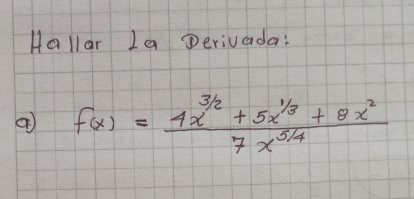 Hallar La Derivada:
a) f(x) = \frac{4x^{3/2} + 5x^{1/3} + 8x^2}{7x^{5/4}}